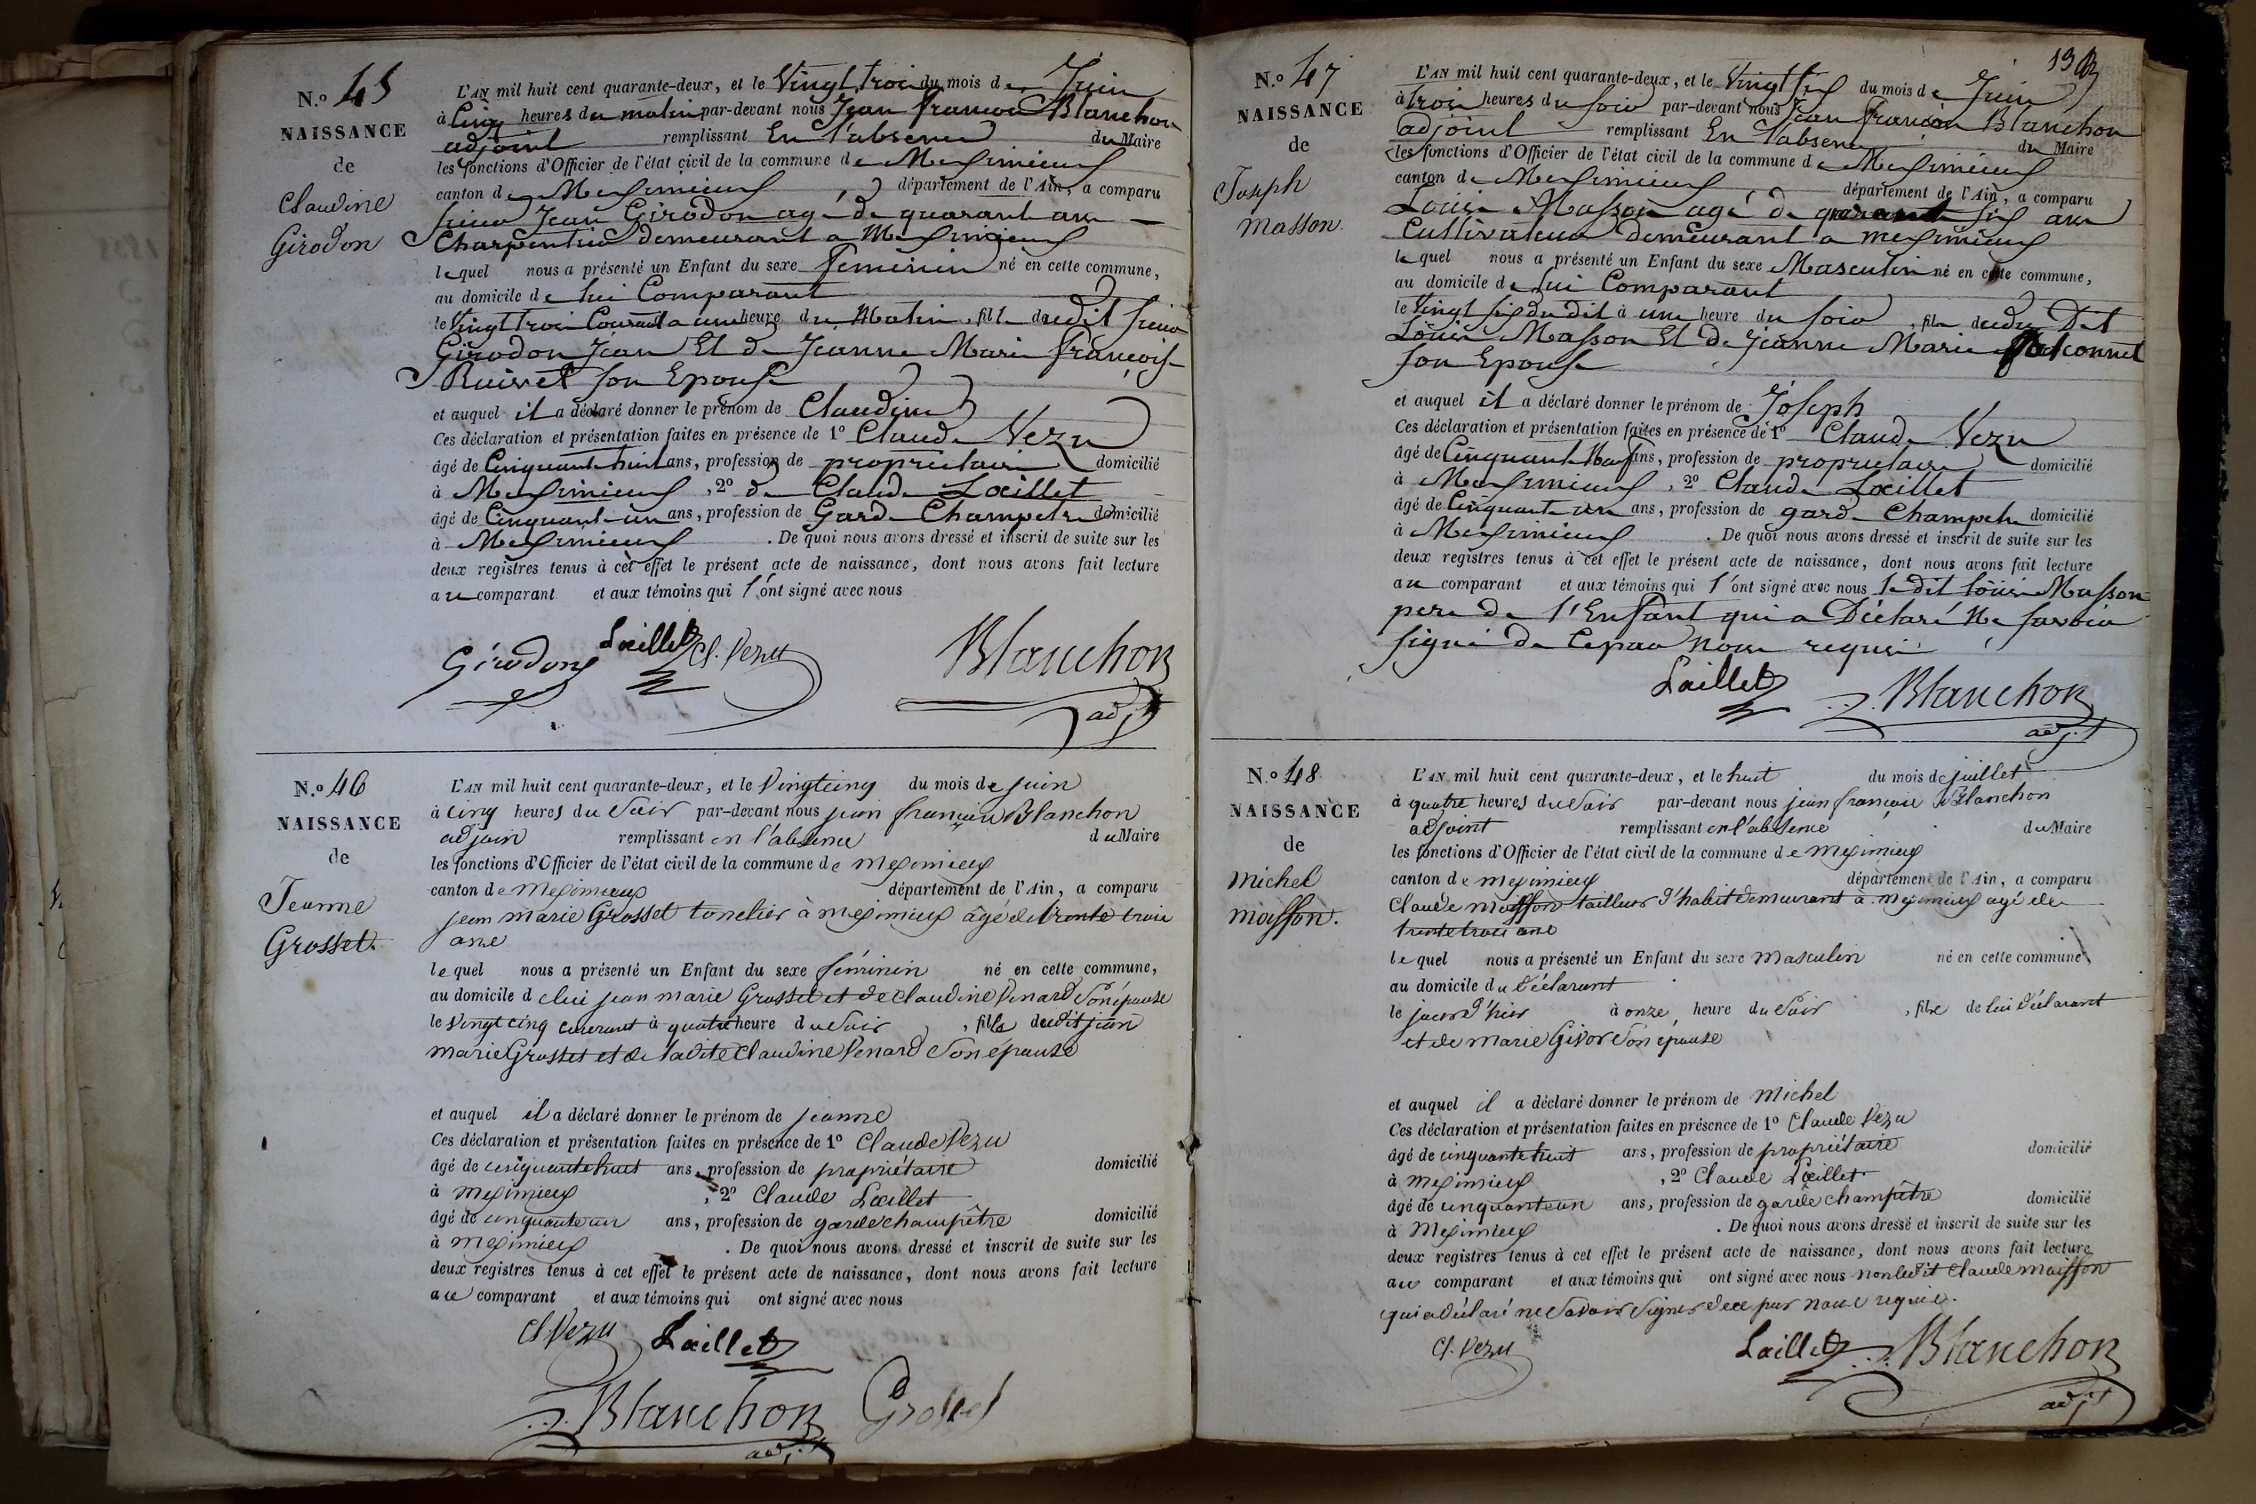 N.º 45
NAISSANCE
de
Claudine
Girodon
L'AN mil huit cent quarante-deux, et le Vingt trois du mois de Juin
à Cinq heures du matin par-devant nous Jean francois Blanchon
adjoint remplissant En l'absence du Maire
les fonctions d'Officier de l'état civil de la commune de Meximieux
canton de Meximieux département de l'Ain, a comparu
Jean Girodon agé de quarant ans
Charpentier demeurant a Meximieux
lequel nous a présenté un Enfant du sexe feminin né en cette commune,
au domicile de lui Comparant
le Vingt trois Courant a une heure du Matin, fille dudit
Girodon Jean Et de Jeanne Marie françoise
Ruivet son Epouse
et auquel il a déclaré donner le prénom de Claudine
Ces déclaration et présentation faites en présence de 1º Claude Vezu
âgé de Cinquante huit ans, profession de proprietaire domicilié
à Meximieux, 2º de Claude Lœillet
âgé de Cinquante un ans, profession de Garde Champetre domicilié
à Meximieux. De quoi nous avons dressé et inscrit de suite sur les
deux registres tenus à cet effet le présent acte de naissance, dont nous avons fait lecture
au comparant et aux témoins qui l'ont signé avec nous
Girodon Lœillet Cl. Vezu Blanchon
adjt
N.º 46
NAISSANCE
de
Jeanne
Grosset.
L'AN mil huit cent quarante-deux, et le Vingtcinq du mois de juin
à cinq heures du Soir par-devant nous jean françois Blanchon
adjoin remplissant en l'absence du Maire
les fonctions d'Officier de l'état civil de la commune de meximieux
canton de meximieux département de l'Ain, a comparu
jean marie Grosset tonelier à meximieux âgé de trente trois
ans
lequel nous a présenté un Enfant du sexe féminin né en cette commune,
au domicile de lui jean marie Grosset et de Claudine Venard Son épouse
le Vingt cinq courant à quatre heure du Soir, fille dudit jean
marie Grosset et de ladite Claudine Venard Son épouse
et auquel il a déclaré donner le prénom de jeanne
Ces déclaration et présentation faites en présence de 1º Claude Vezu
âgé de cinquante huit ans, profession de propriétaire domicilié
à meximieux, 2º Claude Lœillet
âgé de cinquante un ans, profession de garde champêtre domicilié
à meximieux. De quoi nous avons dressé et inscrit de suite sur les
deux registres tenus à cet effet le présent acte de naissance, dont nous avons fait lecture
au comparant et aux témoins qui ont signé avec nous
Cl Vezu Lœillet
Blanchon Grosset
adjt
N.º 47
NAISSANCE
de
Joseph
masson.
L'AN mil huit cent quarante-deux, et le Vingt six du mois de Juin
à trois heures du soir par-devant nous Jean francois Blanchon
adjoint remplissant En l'absence du Maire
les fonctions d'Officier de l'état civil de la commune de Meximieux
canton de Meximieux département de l'Ain, a comparu
Louis Masson agé de quarante six ans
Cultivateur demeurant a meximieux
lequel nous a présenté un Enfant du sexe Masculin né en cette commune,
au domicile de lui Comparant
le Vingt six du dit à une heure du soir, fils dudu Dit
Louis Masson Et de Jeanne Marie falconnet
son Epouse
et auquel il a déclaré donner le prénom de Joseph
Ces déclaration et présentation faites en présence de 1º Claude Vezu
âgé de Cinquante Neuf ans, profession de proprietaire domicilié
à Meximieux, 2º Claude Lœillet
âgé de Cinquante un ans, profession de garde Champetre domicilié
à Meximieux. De quoi nous avons dressé et inscrit de suite sur les
deux registres tenus à cet effet le présent acte de naissance, dont nous avons fait lecture
au comparant et aux témoins qui l'ont signé avec nous le dit louis Masson
pere de l'Enfant qui a Déclaré Ne savoir
signé de Ce par Nous requis
Lœillet Blanchon
adjt
N.º 48
NAISSANCE
de
Michel
masson.
L'AN mil huit cent quarante-deux, et le huit du mois de juillet
à quatre heures du Soir par-devant nous jean françois Blanchon
adjoint remplissant en l'absence du Maire
les fonctions d'Officier de l'état civil de la commune de meximieux
canton de meximieux département de l'Ain, a comparu
Claude masson tailleur d'habit demeurant à meximieux agé de
trente trois ans
lequel nous a présenté un Enfant du sexe masculin né en cette commune,
au domicile du déclarant
le jour d'hier à onze heure du Soir, fils de lui déclarant
et de marie Givor Son épouse
et auquel il a déclaré donner le prénom de Michel
Ces déclaration et présentation faites en présence de 1º Claude Vezu
âgé de cinquante huit ans, profession de propriétaire domicilié
à meximieux, 2º Claude Lœillet
âgé de cinquante un ans, profession de garde champêtre domicilié
à Meximieux. De quoi nous avons dressé et inscrit de suite sur les
deux registres tenus à cet effet le présent acte de naissance, dont nous avons fait lecture
au comparant et aux témoins qui ont signé avec nous non ledit Claude masson
qui a déclaré ne Savoir Signer de ce par nous requis.
Cl. Vezu Lœillet Blanchon
adjt